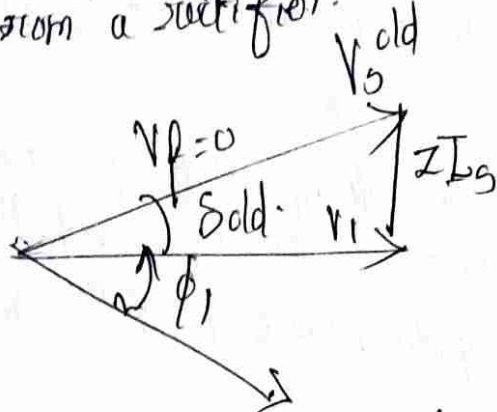 from a rectifier.
Vs old
VR=0
ZIs
δold.
V1
φ1